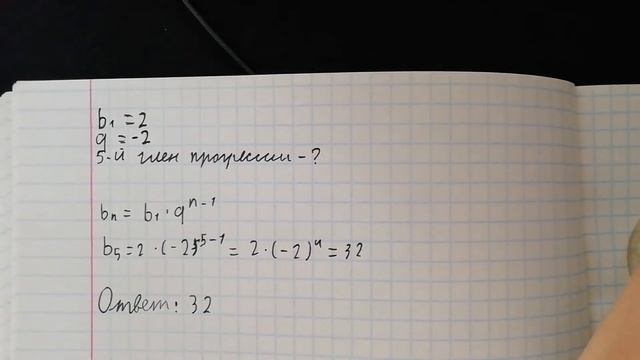 b₁ = 2
q = -2
5-й член прогрессии - ?
bₙ = b₁ · qⁿ⁻¹
b₅ = 2 · (-2)⁵⁻¹ = 2 · (-2)⁴ = 32
Ответ: 32